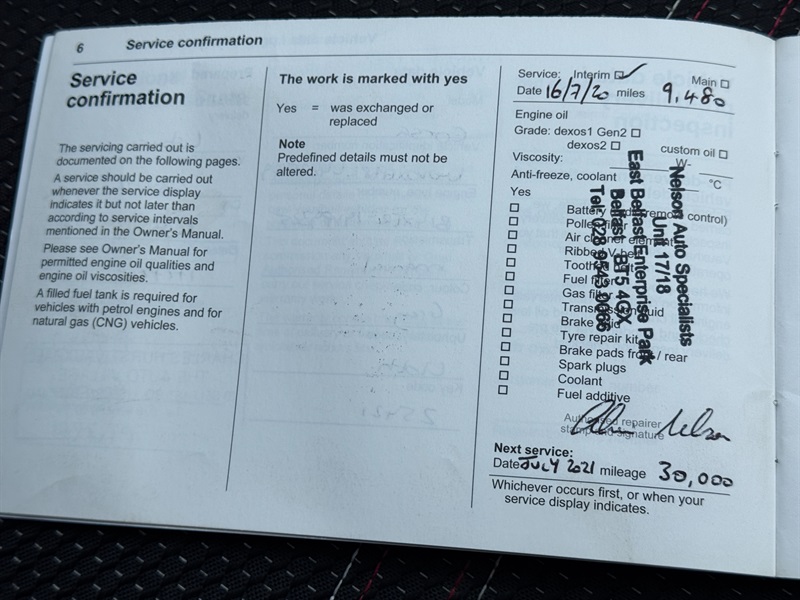 6 Service confirmation
Service
confirmation
The servicing carried out is
documented on the following pages.
A service should be carried out
whenever the service display
indicates it but not later than
according to service intervals
mentioned in the Owner's Manual.
Please see Owner's Manual for
permitted engine oil qualities and
engine oil viscosities.
A filled fuel tank is required for
vehicles with petrol engines and for
natural gas (CNG) vehicles.
The work is marked with yes
Yes = was exchanged or
replaced
Note
Predefined details must not be
altered.
Service: Interim ☑ Main ☐
Date 16/7/20 miles 9,480
Engine oil
Grade: dexos1 Gen2 ☐
dexos2 ☐ custom oil ☐
Viscosity: W-
Anti-freeze, coolant °C
Yes
☐ Battery (remote control)
☐ Pollen filter
☐ Air cleaner element
☐ Ribbed V-belt
☐ Toothed
☐ Fuel filter
☐ Gas filter
☐ Transmission fluid
☐ Brake fluid
☐ Tyre repair kit
☐ Brake pads front / rear
☐ Spark plugs
☐ Coolant
☐ Fuel additive
Nelson Auto Specialists
Unit 17/18
East Belfast Enterprise Park
Belfast BT5 4GX
Authorised repairer
stamp and signature
Nelson
Next service:
Date JULY 2021 mileage 30,000
Whichever occurs first, or when your
service display indicates.